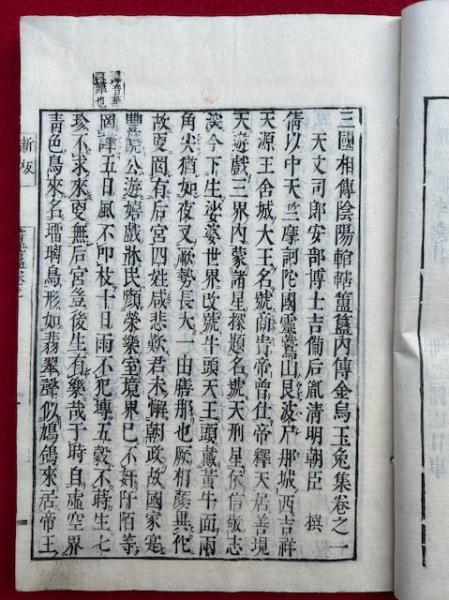 三國相傳陰陽輨轄簠簋內傳金烏玉兔集卷之一
天文司郎安部博士吉備后胤清明朝臣 撰
倩以中天竺摩訶陀國靈鷲山艮波尸那城西吉祥
天源王舍城大王名號商貴帝曾仕帝釋天居善現
天遊戲三界內蒙諸星探題名號天刑星依信敬志
深今下生娑婆世界改號牛頭天王頭戴黃牛面兩
角尖猶如夜叉厥勢長大一由膳那也厥相顏異他
故更罔有后宮四姓咸悲歎君未懈朝政故國家寔
豐饒公遊嬉戲牀民顧榮樂室境界已不奸阡陌等
罔諍五日風不卽枝十日雨不犯塼五穀不蒔生七
珍不求來更無后宮豈後生有樂哉于時自虛空界
青色鳥來名瑠璃鳥形如翡翠聲似鳩鴿來居帝王
新板